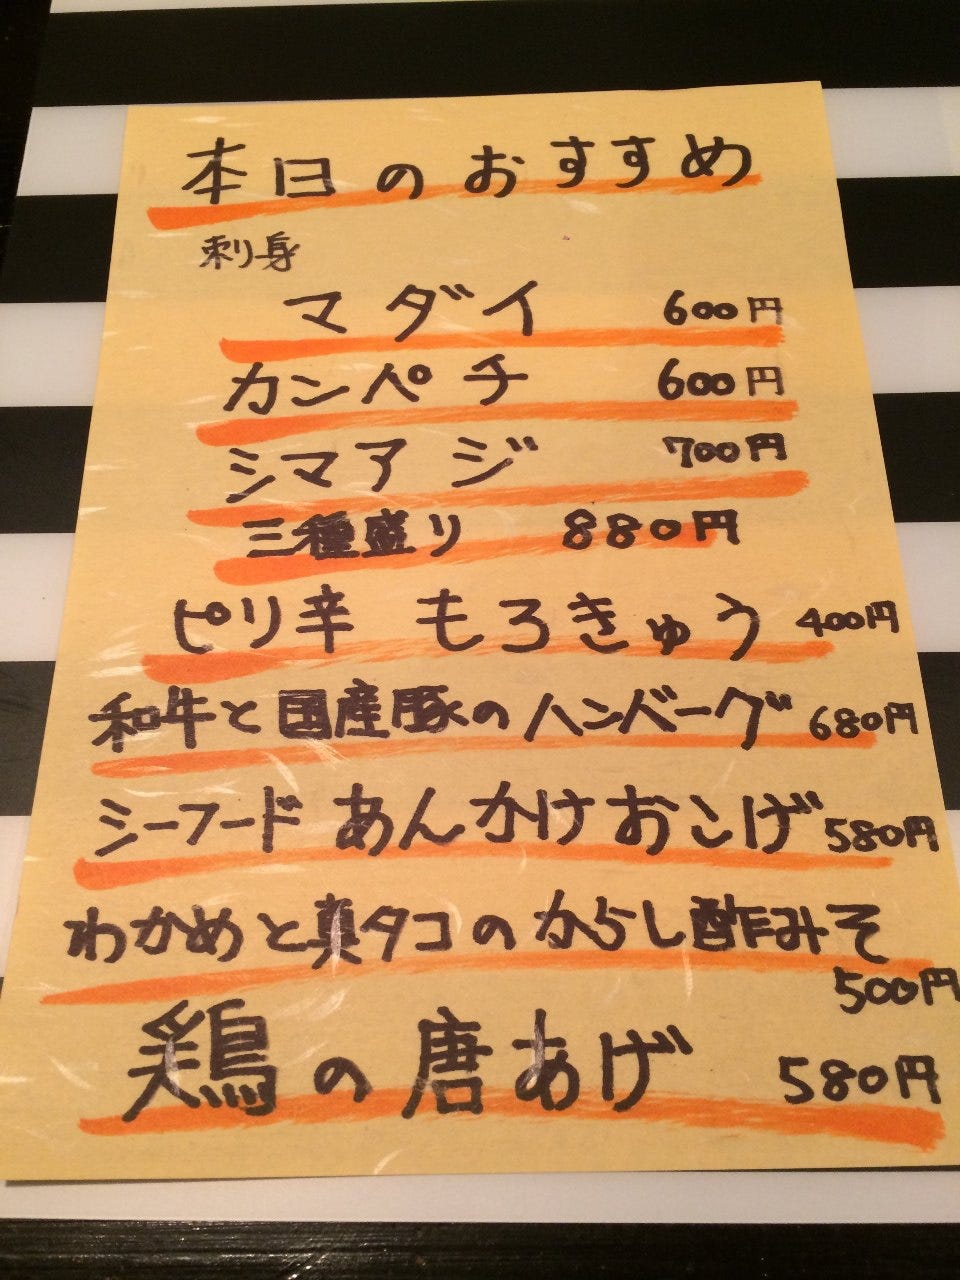 本日のおすすめ
刺身
マダイ 600円
カンパチ 600円
シマアジ 700円
三種盛り 880円
ピリ辛 もろきゅう 400円
和牛と国産豚のハンバーグ 680円
シーフード あんかけおこげ 580円
わかめと真タコのからし酢みそ
500円
鶏の唐あげ 580円